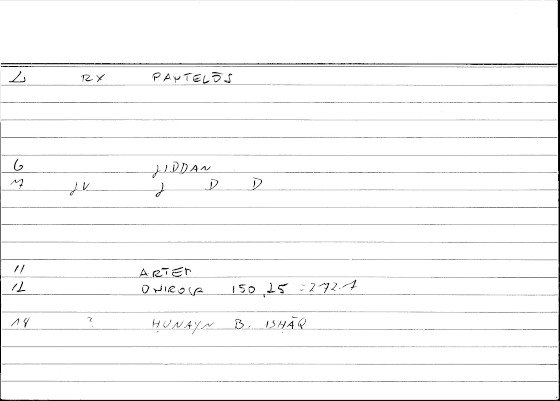 1 RX PANTELŌS
6 JIDDAN
7 JV J D D
11 ARTEM
12 ONIROCR 150,25 = 272.1
14 ? ḤUNAYN B. ISḤĀQ